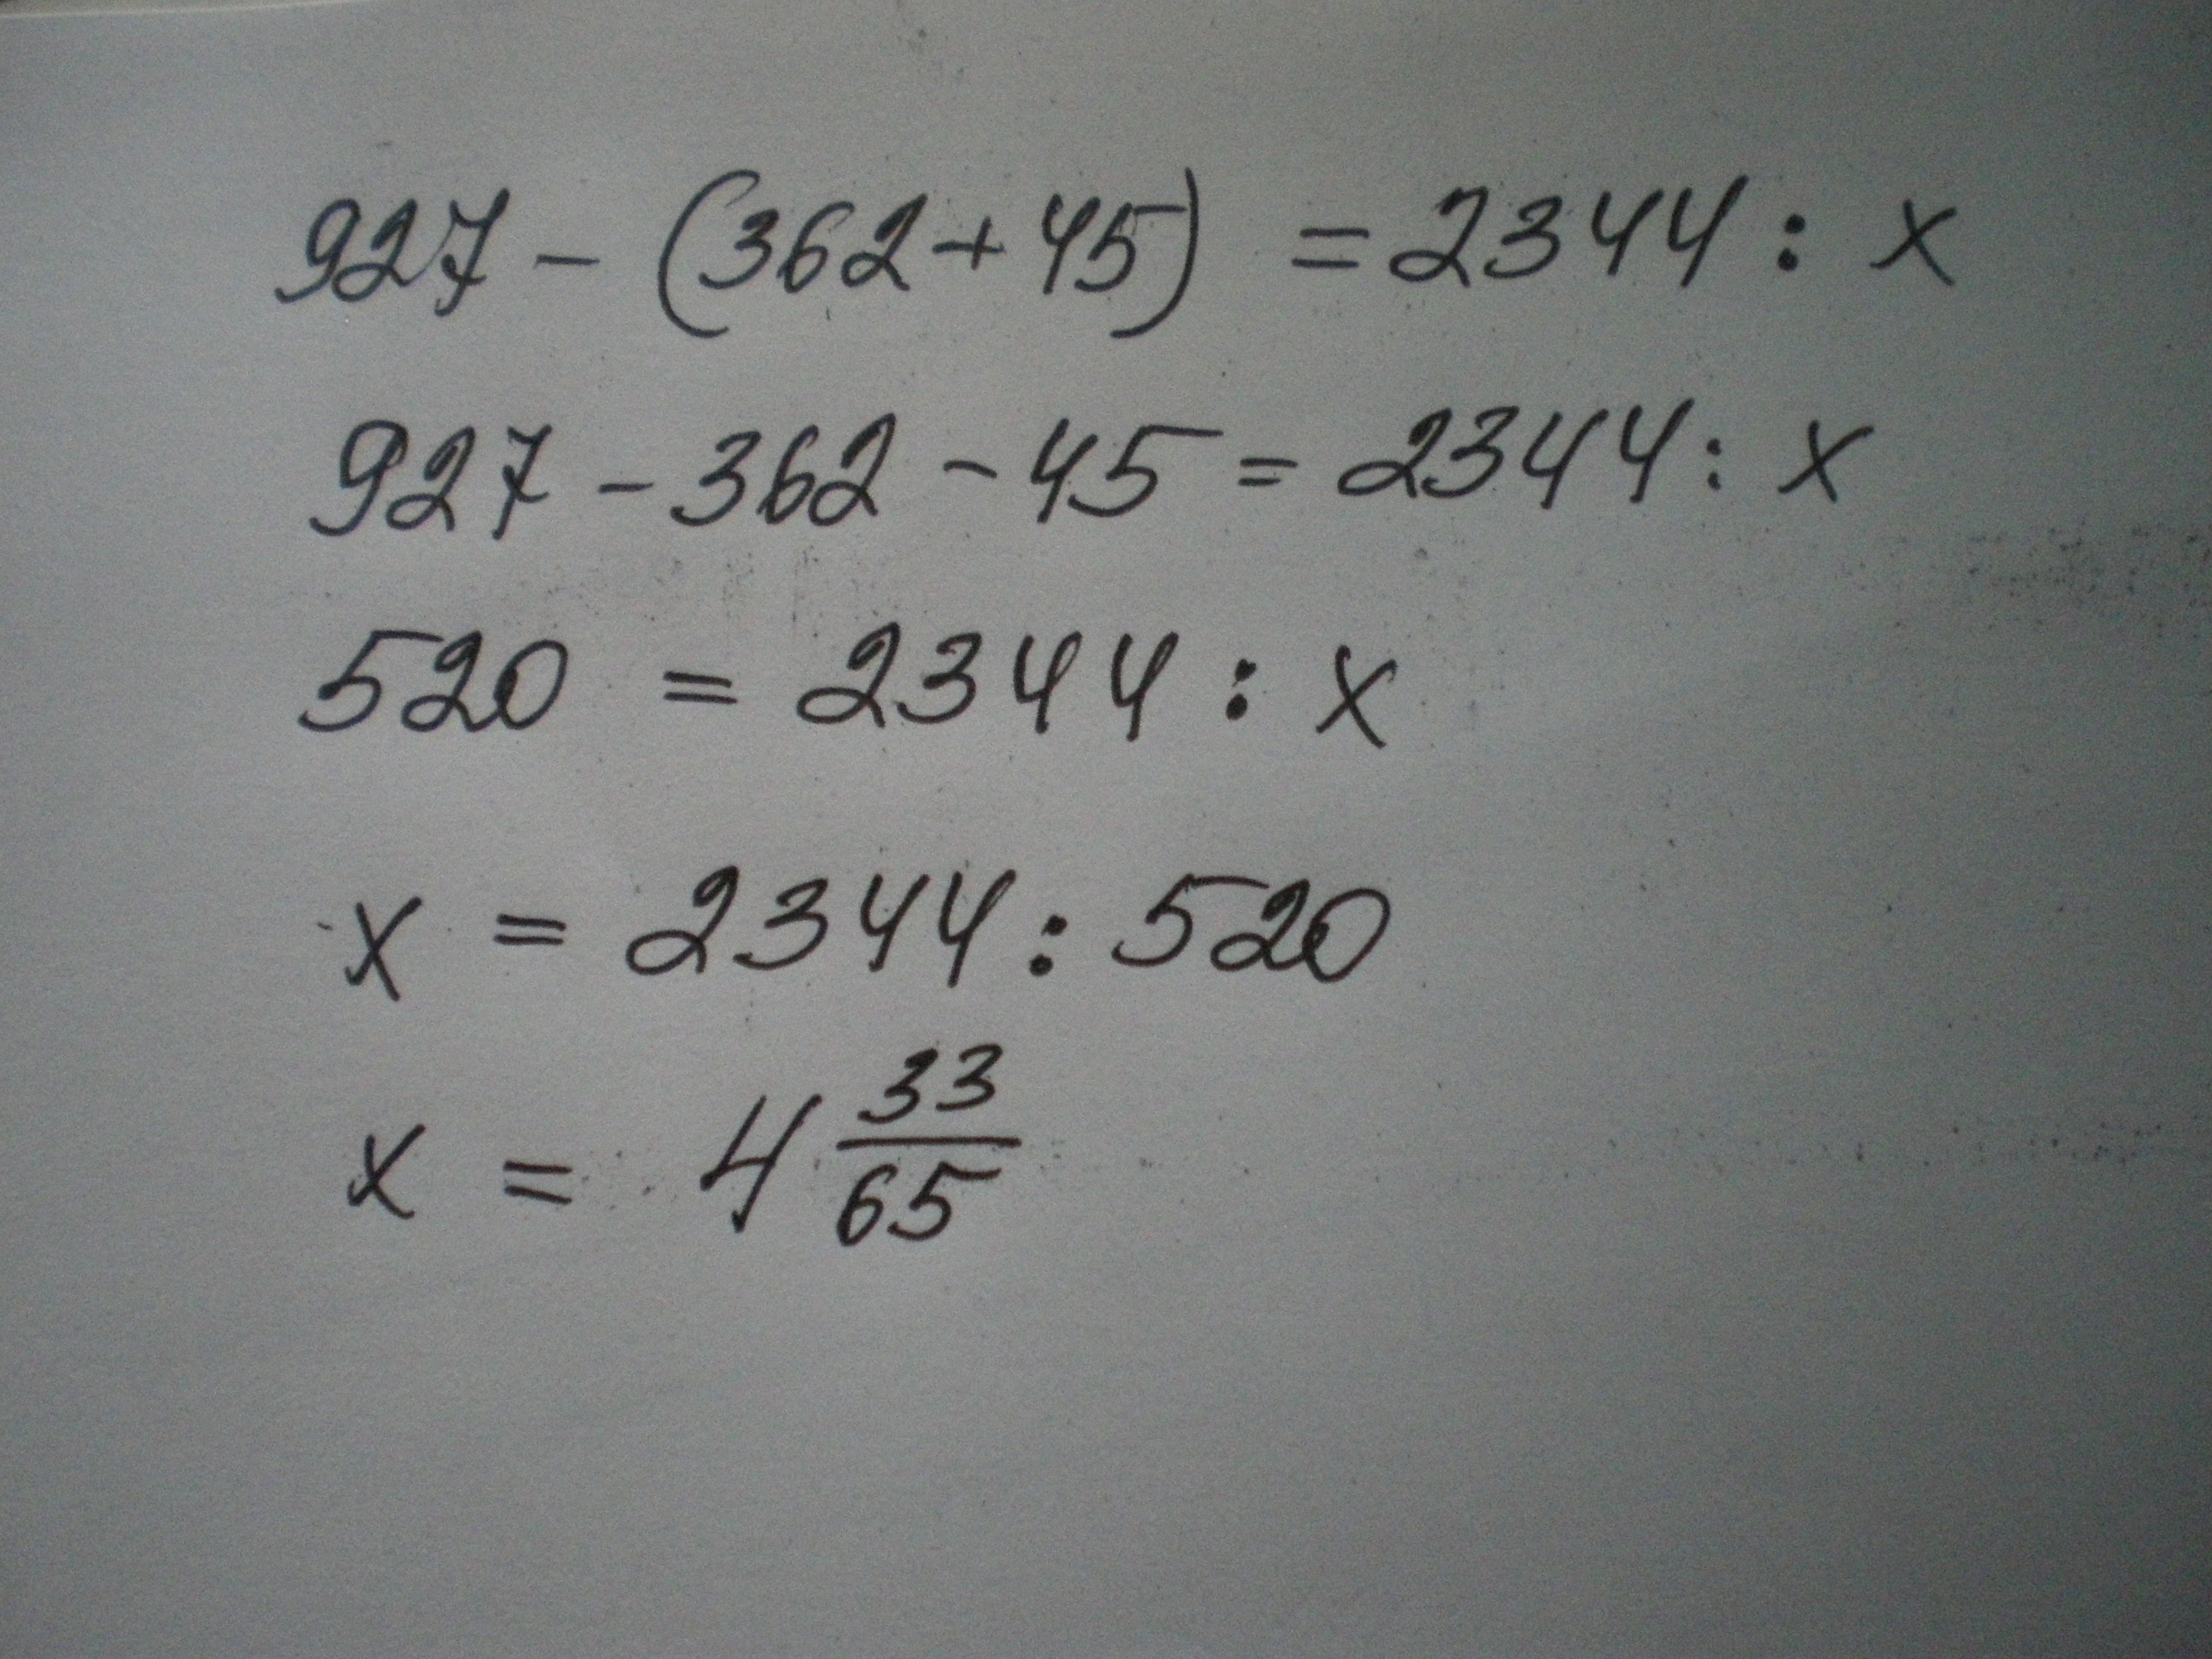 927 - (362 + 45) = 2344 : x
927 - 362 - 45 = 2344 : x
520 = 2344 : x
x = 2344 : 520
x = 4 33/65